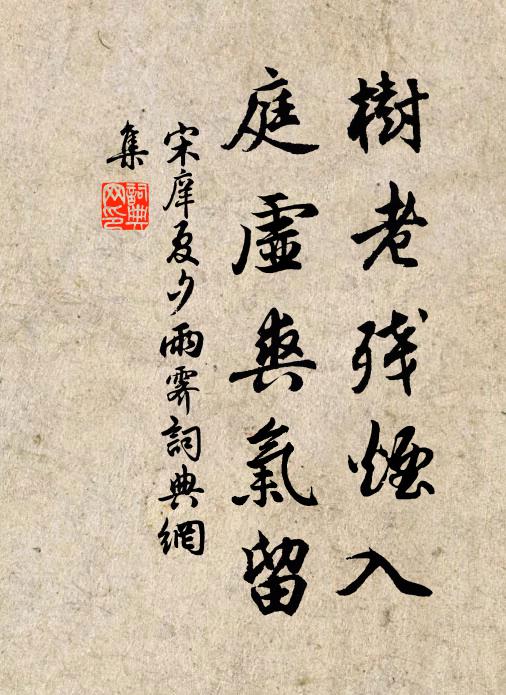 樹老殘煙入
庭虛爽氣留
宋庠夏夕雨霽詞典網
集
詞典网印